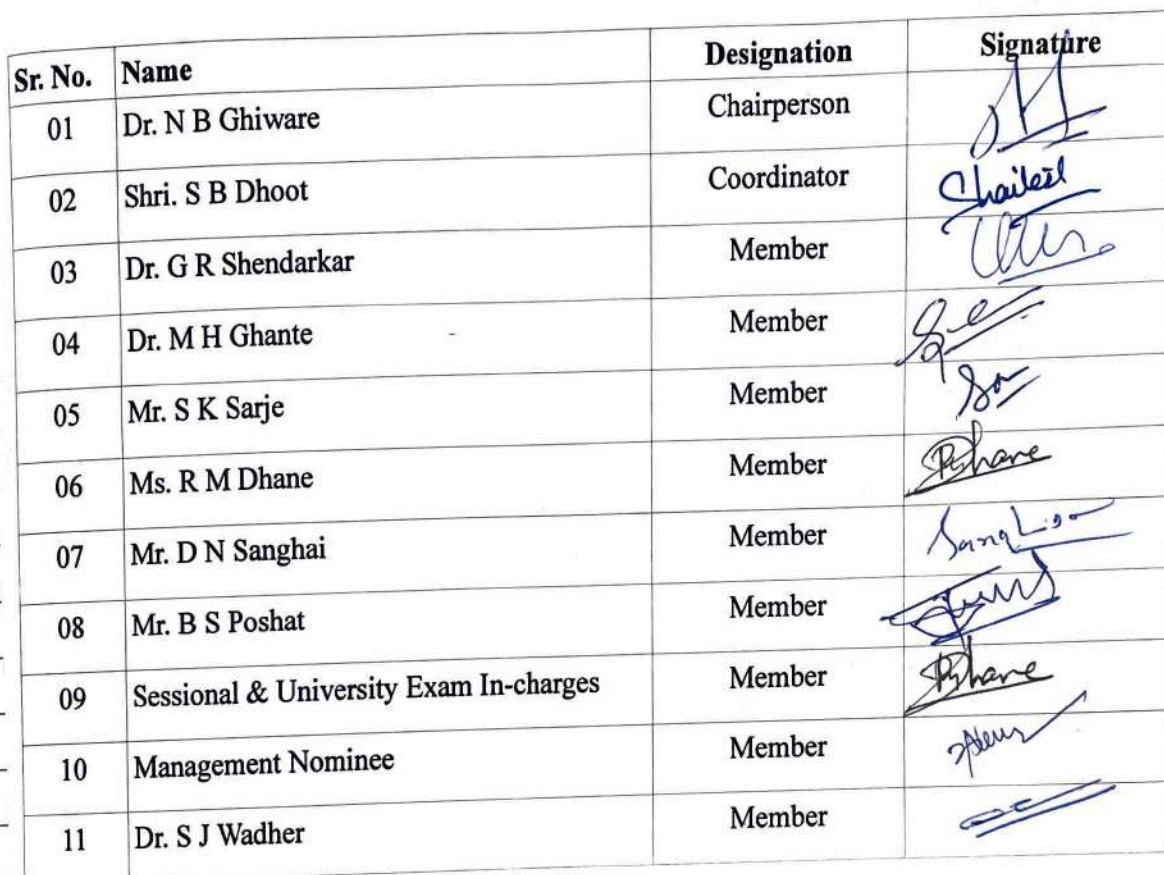 Sr. No. Name Designation Signature
01 Dr. N B Ghiware Chairperson
02 Shri. S B Dhoot Coordinator
03 Dr. G R Shendarkar Member
04 Dr. M H Ghante Member
05 Mr. S K Sarje Member
06 Ms. R M Dhane Member
07 Mr. D N Sanghai Member
08 Mr. B S Poshat Member
09 Sessional & University Exam In-charges Member
10 Management Nominee Member
11 Dr. S J Wadher Member